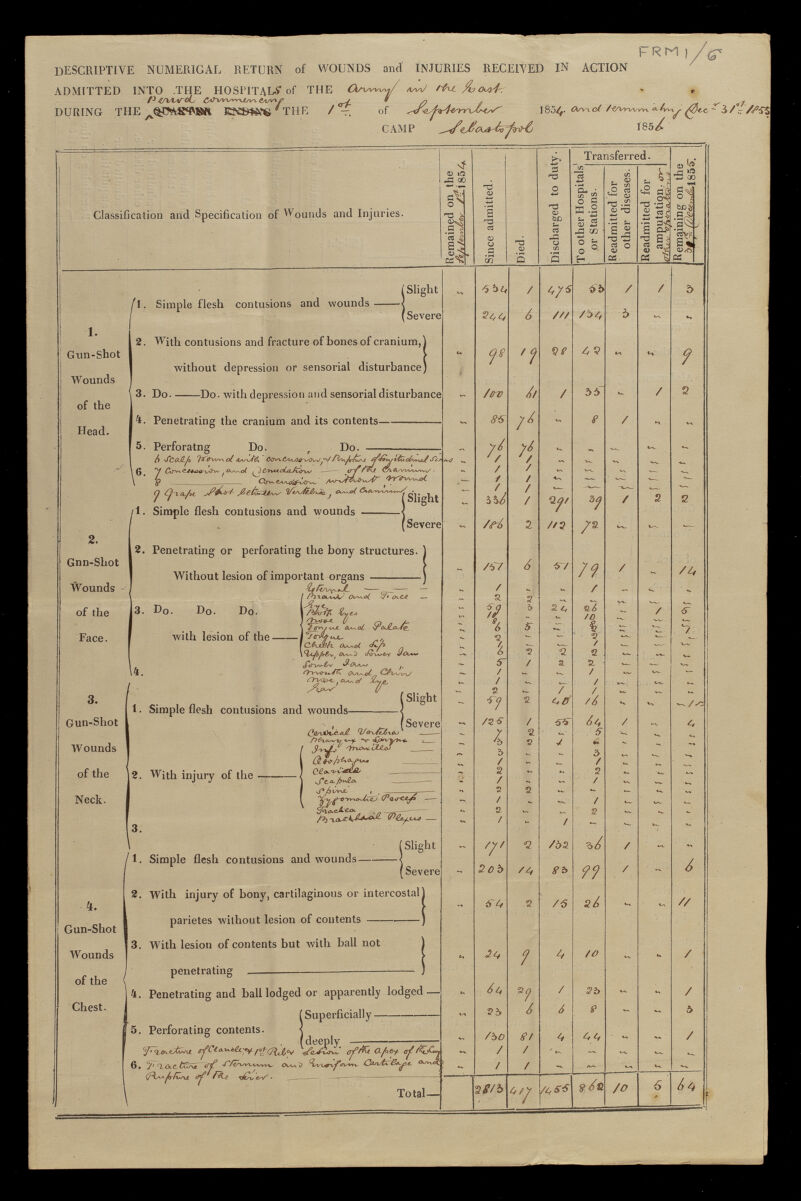 FRM1/6
DESCRIPTIVE NUMERICAL RETURN of WOUNDS and INJURIES RECEIVED IN ACTION
ADMITTED INTO THE HOSPITALS of THE Army in the East
Period commencing
DURING THE QUARTER ENDING THE 1st of September 1854 and terminating Dec 31st 1855
CAMP Sebastopol 1856
Classification and Specification of Wounds and Injuries.
Remained on the September 1st 1854
Since admitted.
Died.
Discharged to duty.
Transferred.
To other Hospitals or Stations.
Readmitted for other diseases.
Readmitted for amputation. or other operations
Remaining on the 31st December 1855.
1. Gun-Shot Wounds of the Head.
1. Simple flesh contusions and wounds Slight 534 1 475 53 1 1 3
Severe 244 6 111 134 3
2. With contusions and fracture of bones of cranium,
without depression or sensorial disturbance 98 19 28 42 9
3. Do. Do. with depression and sensorial disturbance 100 61 1 35 1 2
4. Penetrating the cranium and its contents 85 76 8 1
5. Perforatng Do. , Do. 76 76
6 Scalp Wound with concussion, & Rupture of Longitudinal Sinus 1 1
6. 7 Concession, and Denudation of the Cranium 1 1
8 Concussion without Wound 1 1
9 Grape Shot between Vertebra, and Cranium 1 1
2. Gnn-Shot Wounds of the Face.
1. Simple flesh contusions and wounds Slight 336 1 291 39 1 2 2
Severe 186 2 112 72
2. Penetrating or perforating the bony structures.
Without lesion of important organs 151 6 51 79 1 14
External 1 1
Brain and Face 2 2
3. Do. Do. Do. with lesion of the
Eye 59 3 24 26 1 5
Both Eyes 10
Nose
Tongue and Palate 6 5
Tongue
Cheek and Lip
Upper, and Lower Jaw 6 2 2 2
Lower Jaw 5 1 2 2
4. Mouth and Chin 1 1
Nose, and Eye 1 1
Ear 2 1 1
3. Gun-Shot Wounds of the Neck.
1. Simple flesh contusions and wounds Slight 59 2 40 16
Severe 125 1 55 64 1 4
Cervical Vertebra 7 2 5
Pharynx or Larynx
2. With injury of the
Inf. Maxilla 3 3
Œsophagus 1 1
Clavicle 2 2
Scapula 1 1
Spine 2 2
Zygomatic Process 1 1
Trachea 2 2
Brachial Plexus 1 1
3.
4. Gun-Shot Wounds of the Chest.
1. Simple flesh contusions and wounds Slight 171 2 132 36 1
Severe 203 14 83 99 1 6
2. With injury of bony, cartilaginous or intercostal
parietes without lesion of contents 54 2 15 26 11
3. With lesion of contents but with ball not
penetrating 24 9 4 10 1
4. Penetrating and ball lodged or apparently lodged 64 29 1 23 1
5. Perforating contents. Superficially 23 6 6 8 3
deeply 130 81 4 44 1
Fracture of Clavicle & 1st Rib & Lesion of the Apex of the Lung 1 1
6. Fracture of Sternum and Ensiform Cartilage and 1 1
Rupture of the Liver.
Total 2813 417 1455 862 10 5 64